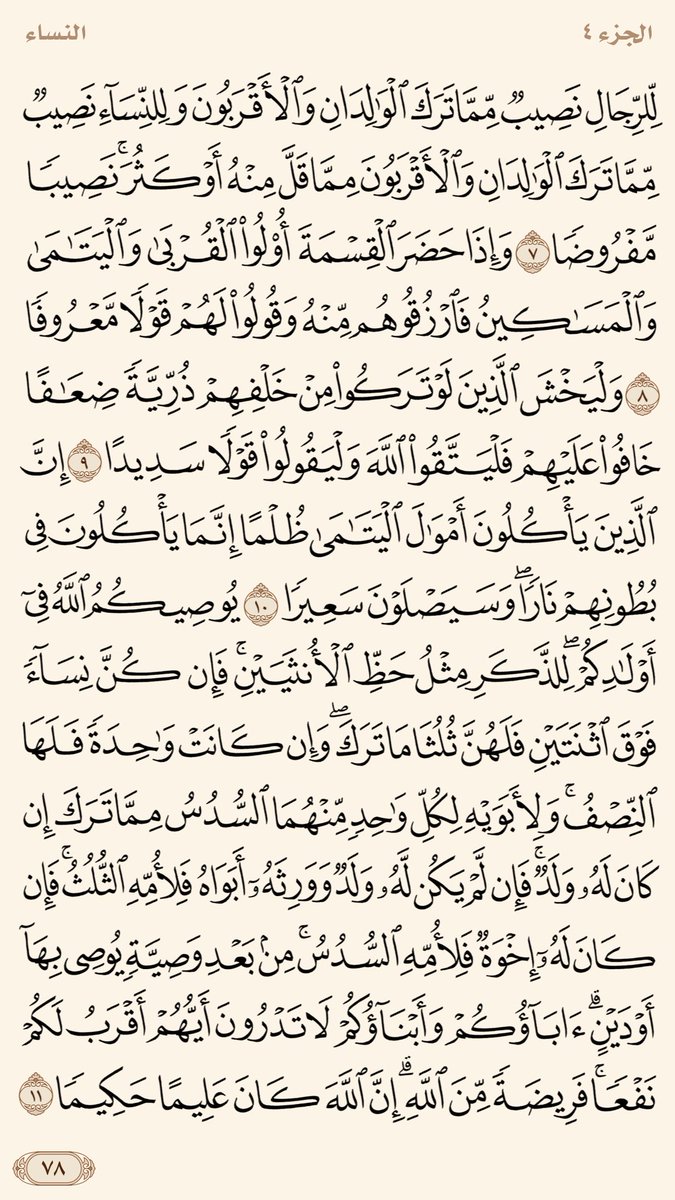 الجزء ٤
النساء
لِّلرِّجَالِ نَصِيبٌ مِّمَّا تَرَكَ ٱلْوَٰلِدَانِ وَٱلْأَقْرَبُونَ وَلِلنِّسَآءِ نَصِيبٌ
مِّمَّا تَرَكَ ٱلْوَٰلِدَانِ وَٱلْأَقْرَبُونَ مِمَّا قَلَّ مِنْهُ أَوْ كَثُرَ ۚ نَصِيبًا
مَّفْرُوضًا ٧ وَإِذَا حَضَرَ ٱلْقِسْمَةَ أُو۟لُوا۟ ٱلْقُرْبَىٰ وَٱلْيَتَٰمَىٰ
وَٱلْمَسَٰكِينُ فَٱرْزُقُوهُم مِّنْهُ وَقُولُوا۟ لَهُمْ قَوْلًا مَّعْرُوفًا
٨ وَلْيَخْشَ ٱلَّذِينَ لَوْ تَرَكُوا۟ مِنْ خَلْفِهِمْ ذُرِّيَّةً ضِعَٰفًا
خَافُوا۟ عَلَيْهِمْ فَلْيَتَّقُوا۟ ٱللَّهَ وَلْيَقُولُوا۟ قَوْلًا سَدِيدًا ٩ إِنَّ
ٱلَّذِينَ يَأْكُلُونَ أَمْوَٰلَ ٱلْيَتَٰمَىٰ ظُلْمًا إِنَّمَا يَأْكُلُونَ فِى
بُطُونِهِمْ نَارًا ۖ وَسَيَصْلَوْنَ سَعِيرًا ١٠ يُوصِيكُمُ ٱللَّهُ فِىٓ
أَوْلَٰدِكُمْ ۖ لِلذَّكَرِ مِثْلُ حَظِّ ٱلْأُنثَيَيْنِ ۚ فَإِن كُنَّ نِسَآءً
فَوْقَ ٱثْنَتَيْنِ فَلَهُنَّ ثُلُثَا مَا تَرَكَ ۖ وَإِن كَانَتْ وَٰحِدَةً فَلَهَا
ٱلنِّصْفُ ۚ وَلِأَبَوَيْهِ لِكُلِّ وَٰحِدٍ مِّنْهُمَا ٱلسُّدُسُ مِمَّا تَرَكَ إِن
كَانَ لَهُۥ وَلَدٌ ۚ فَإِن لَّمْ يَكُن لَّهُۥ وَلَدٌ وَوَرِثَهُۥٓ أَبَوَاهُ فَلِأُمِّهِ ٱلثُّلُثُ ۚ فَإِن
كَانَ لَهُۥٓ إِخْوَةٌ فَلِأُمِّهِ ٱلسُّدُسُ ۚ مِنۢ بَعْدِ وَصِيَّةٍ يُوصِى بِهَآ
أَوْ دَيْنٍ ۗ ءَابَآؤُكُمْ وَأَبْنَآؤُكُمْ لَا تَدْرُونَ أَيُّهُمْ أَقْرَبُ لَكُمْ
نَفْعًا ۚ فَرِيضَةً مِّنَ ٱللَّهِ ۗ إِنَّ ٱللَّهَ كَانَ عَلِيمًا حَكِيمًا ١١
٧٨